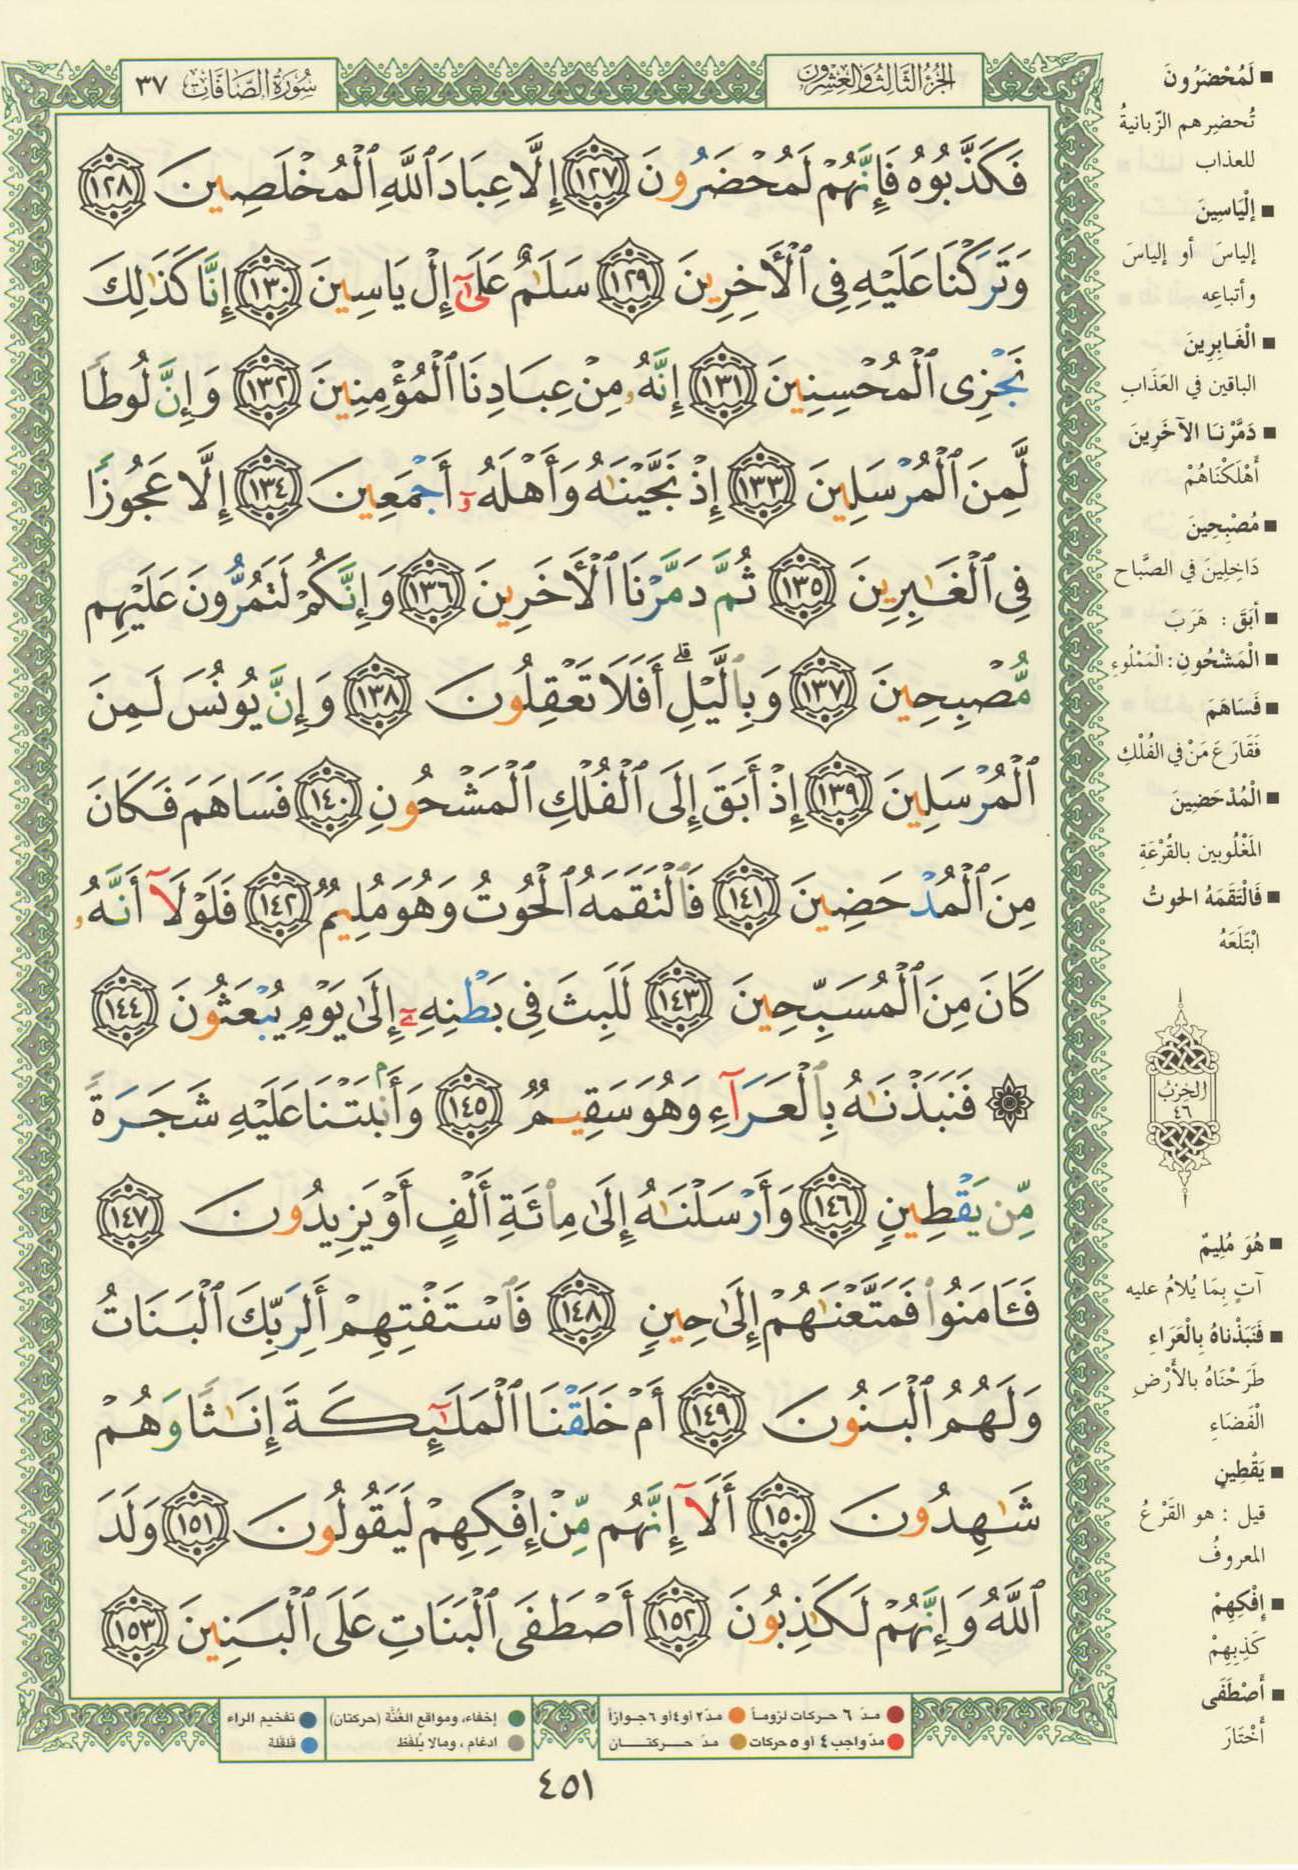 سُورَةُ الصَّافَّات ٣٧
الجُزْءُ الثَّالِثُ وَالعِشْرُونَ
فَكَذَّبُوهُ فَإِنَّهُمْ لَمُحْضَرُونَ ١٢٧ إِلَّا عِبَادَ ٱللَّهِ ٱلْمُخْلَصِينَ ١٢٨
وَتَرَكْنَا عَلَيْهِ فِى ٱلْأَخِرِينَ ١٢٩ سَلَٰمٌ عَلَىٰٓ إِلْ يَاسِينَ ١٣٠ إِنَّا كَذَٰلِكَ
نَجْزِى ٱلْمُحْسِنِينَ ١٣١ إِنَّهُۥ مِنْ عِبَادِنَا ٱلْمُؤْمِنِينَ ١٣٢ وَإِنَّ لُوطًا
لَّمِنَ ٱلْمُرْسَلِينَ ١٣٣ إِذْ نَجَّيْنَٰهُ وَأَهْلَهُۥٓ أَجْمَعِينَ ١٣٤ إِلَّا عَجُوزًا
فِى ٱلْغَٰبِرِينَ ١٣٥ ثُمَّ دَمَّرْنَا ٱلْأَخَرِينَ ١٣٦ وَإِنَّكُمْ لَتَمُرُّونَ عَلَيْهِم
مُّصْبِحِينَ ١٣٧ وَبِٱلَّيْلِ ۗ أَفَلَا تَعْقِلُونَ ١٣٨ وَإِنَّ يُونُسَ لَمِنَ
ٱلْمُرْسَلِينَ ١٣٩ إِذْ أَبَقَ إِلَى ٱلْفُلْكِ ٱلْمَشْحُونِ ١٤٠ فَسَاهَمَ فَكَانَ
مِنَ ٱلْمُدْحَضِينَ ١٤١ فَٱلْتَقَمَهُ ٱلْحُوتُ وَهُوَ مُلِيمٌ ١٤٢ فَلَوْلَآ أَنَّهُۥ
كَانَ مِنَ ٱلْمُسَبِّحِينَ ١٤٣ لَلَبِثَ فِى بَطْنِهِۦٓ إِلَىٰ يَوْمِ يُبْعَثُونَ ١٤٤
۞ فَنَبَذْنَٰهُ بِٱلْعَرَآءِ وَهُوَ سَقِيمٌ ١٤٥ وَأَنۢبَتْنَا عَلَيْهِ شَجَرَةً
مِّن يَقْطِينٍ ١٤٦ وَأَرْسَلْنَٰهُ إِلَىٰ مِا۟ئَةِ أَلْفٍ أَوْ يَزِيدُونَ ١٤٧
فَـَٔامَنُوا۟ فَمَتَّعْنَٰهُمْ إِلَىٰ حِينٍ ١٤٨ فَٱسْتَفْتِهِمْ أَلِرَبِّكَ ٱلْبَنَاتُ
وَلَهُمُ ٱلْبَنُونَ ١٤٩ أَمْ خَلَقْنَا ٱلْمَلَٰٓئِكَةَ إِنَٰثًا وَهُمْ
شَٰهِدُونَ ١٥٠ أَلَآ إِنَّهُم مِّنْ إِفْكِهِمْ لَيَقُولُونَ ١٥١ وَلَدَ
ٱللَّهُ وَإِنَّهُمْ لَكَٰذِبُونَ ١٥٢ أَصْطَفَى ٱلْبَنَاتِ عَلَى ٱلْبَنِينَ ١٥٣
■ لَمُحْضَرُونَ
تُحضِرهم الزّبانيةُ
للعذاب
■ إلْيَاسِينَ
إلياسَ أو إلياسَ
وأتباعِه
■ الْغَابِرِينَ
الباقين في العَذَابِ
■ دَمَّرْنَا الآخَرِينَ
أهْلَكْنَاهُمْ
■ مُصْبِحِينَ
دَاخِلِينَ في الصَّباح
■ أبَقَ : هَرَبَ
■ الْمَشْحُونِ : الْمَمْلُوءِ
■ فَسَاهَمَ
فَقَارَعَ مَنْ في الفُلْكِ
■ الْمُدْحَضِينَ
المَغْلُوبين بالقُرْعَةِ
■ فَالْتَقَمَهُ الحوتُ
ابْتَلَعَهُ
الحِزْبُ
٤٦
■ هُوَ مُلِيمٌ
آتٍ بِمَا يُلامُ عليه
■ فَنَبَذْنَاهُ بِالْعَرَاءِ
طَرَحْنَاهُ بالأرْضِ
الْفَضَاءِ
■ يَقْطِينٍ
قيل : هو القَرْعُ
المعروفُ
■ إفْكِهِمْ
كَذِبِهِمْ
■ أَصْطَفَى
أَخْتَارَ
مدّ ٦ حركات لزوماً
مدّ ٢ أو ٤ أو ٦ جوازاً
إخفاء، ومواقع الغُنَّة (حركتان)
تفخيم الراء
مدّ واجب ٤ أو ٥ حركات
مدّ حركتان
ادغام ، ومالا يُلفَظ
قلقلة
٤٥١